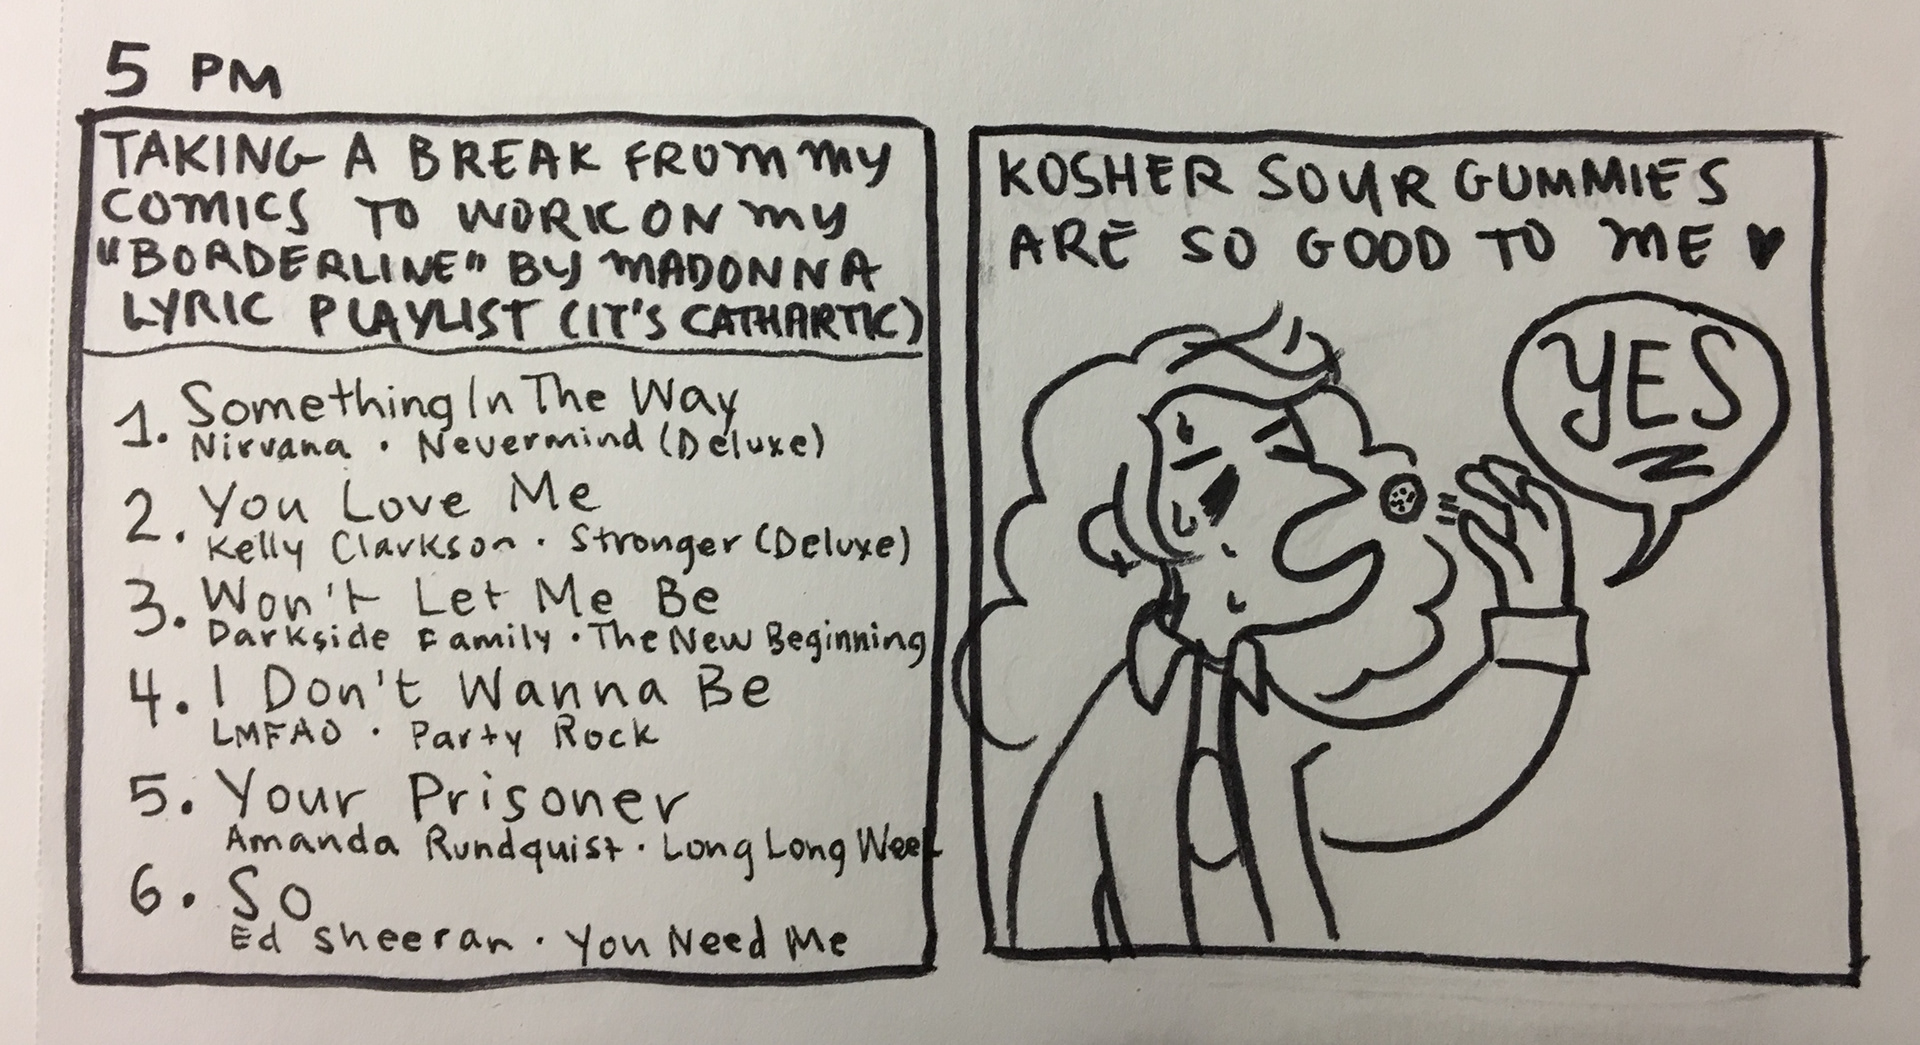 5 PM
TAKING A BREAK FROM MY
COMICS TO WORK ON MY
"BORDERLINE" BY MADONNA
LYRIC PLAYLIST (IT'S CATHARTIC)
1. Something In The Way
Nirvana · Nevermind (Deluxe)
2. You Love Me
Kelly Clarkson · Stronger (Deluxe)
3. Won't Let Me Be
Darkside Family · The New Beginning
4. I Don't Wanna Be
LMFAO · Party Rock
5. Your Prisoner
Amanda Rundquist · Long Long Week
6. So
Ed Sheeran · You Need Me
KOSHER SOUR GUMMIES
ARE SO GOOD TO ME ♥
YES